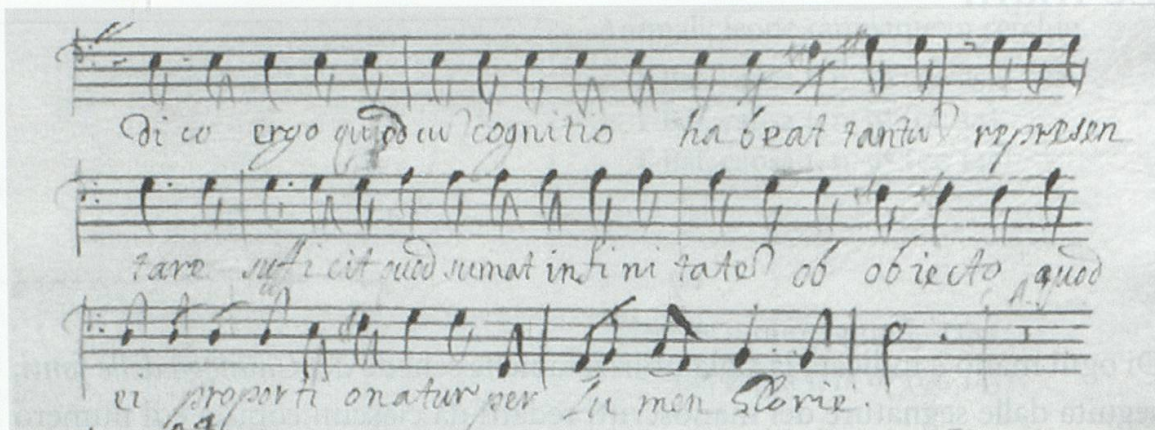 Di co ergo quod cũ cognitio ha beat tantũ represen
tare suffi cit quod sumat infi ni tatẽ ob obiecto quod
ei proporti onatur per Lu men Glorie.